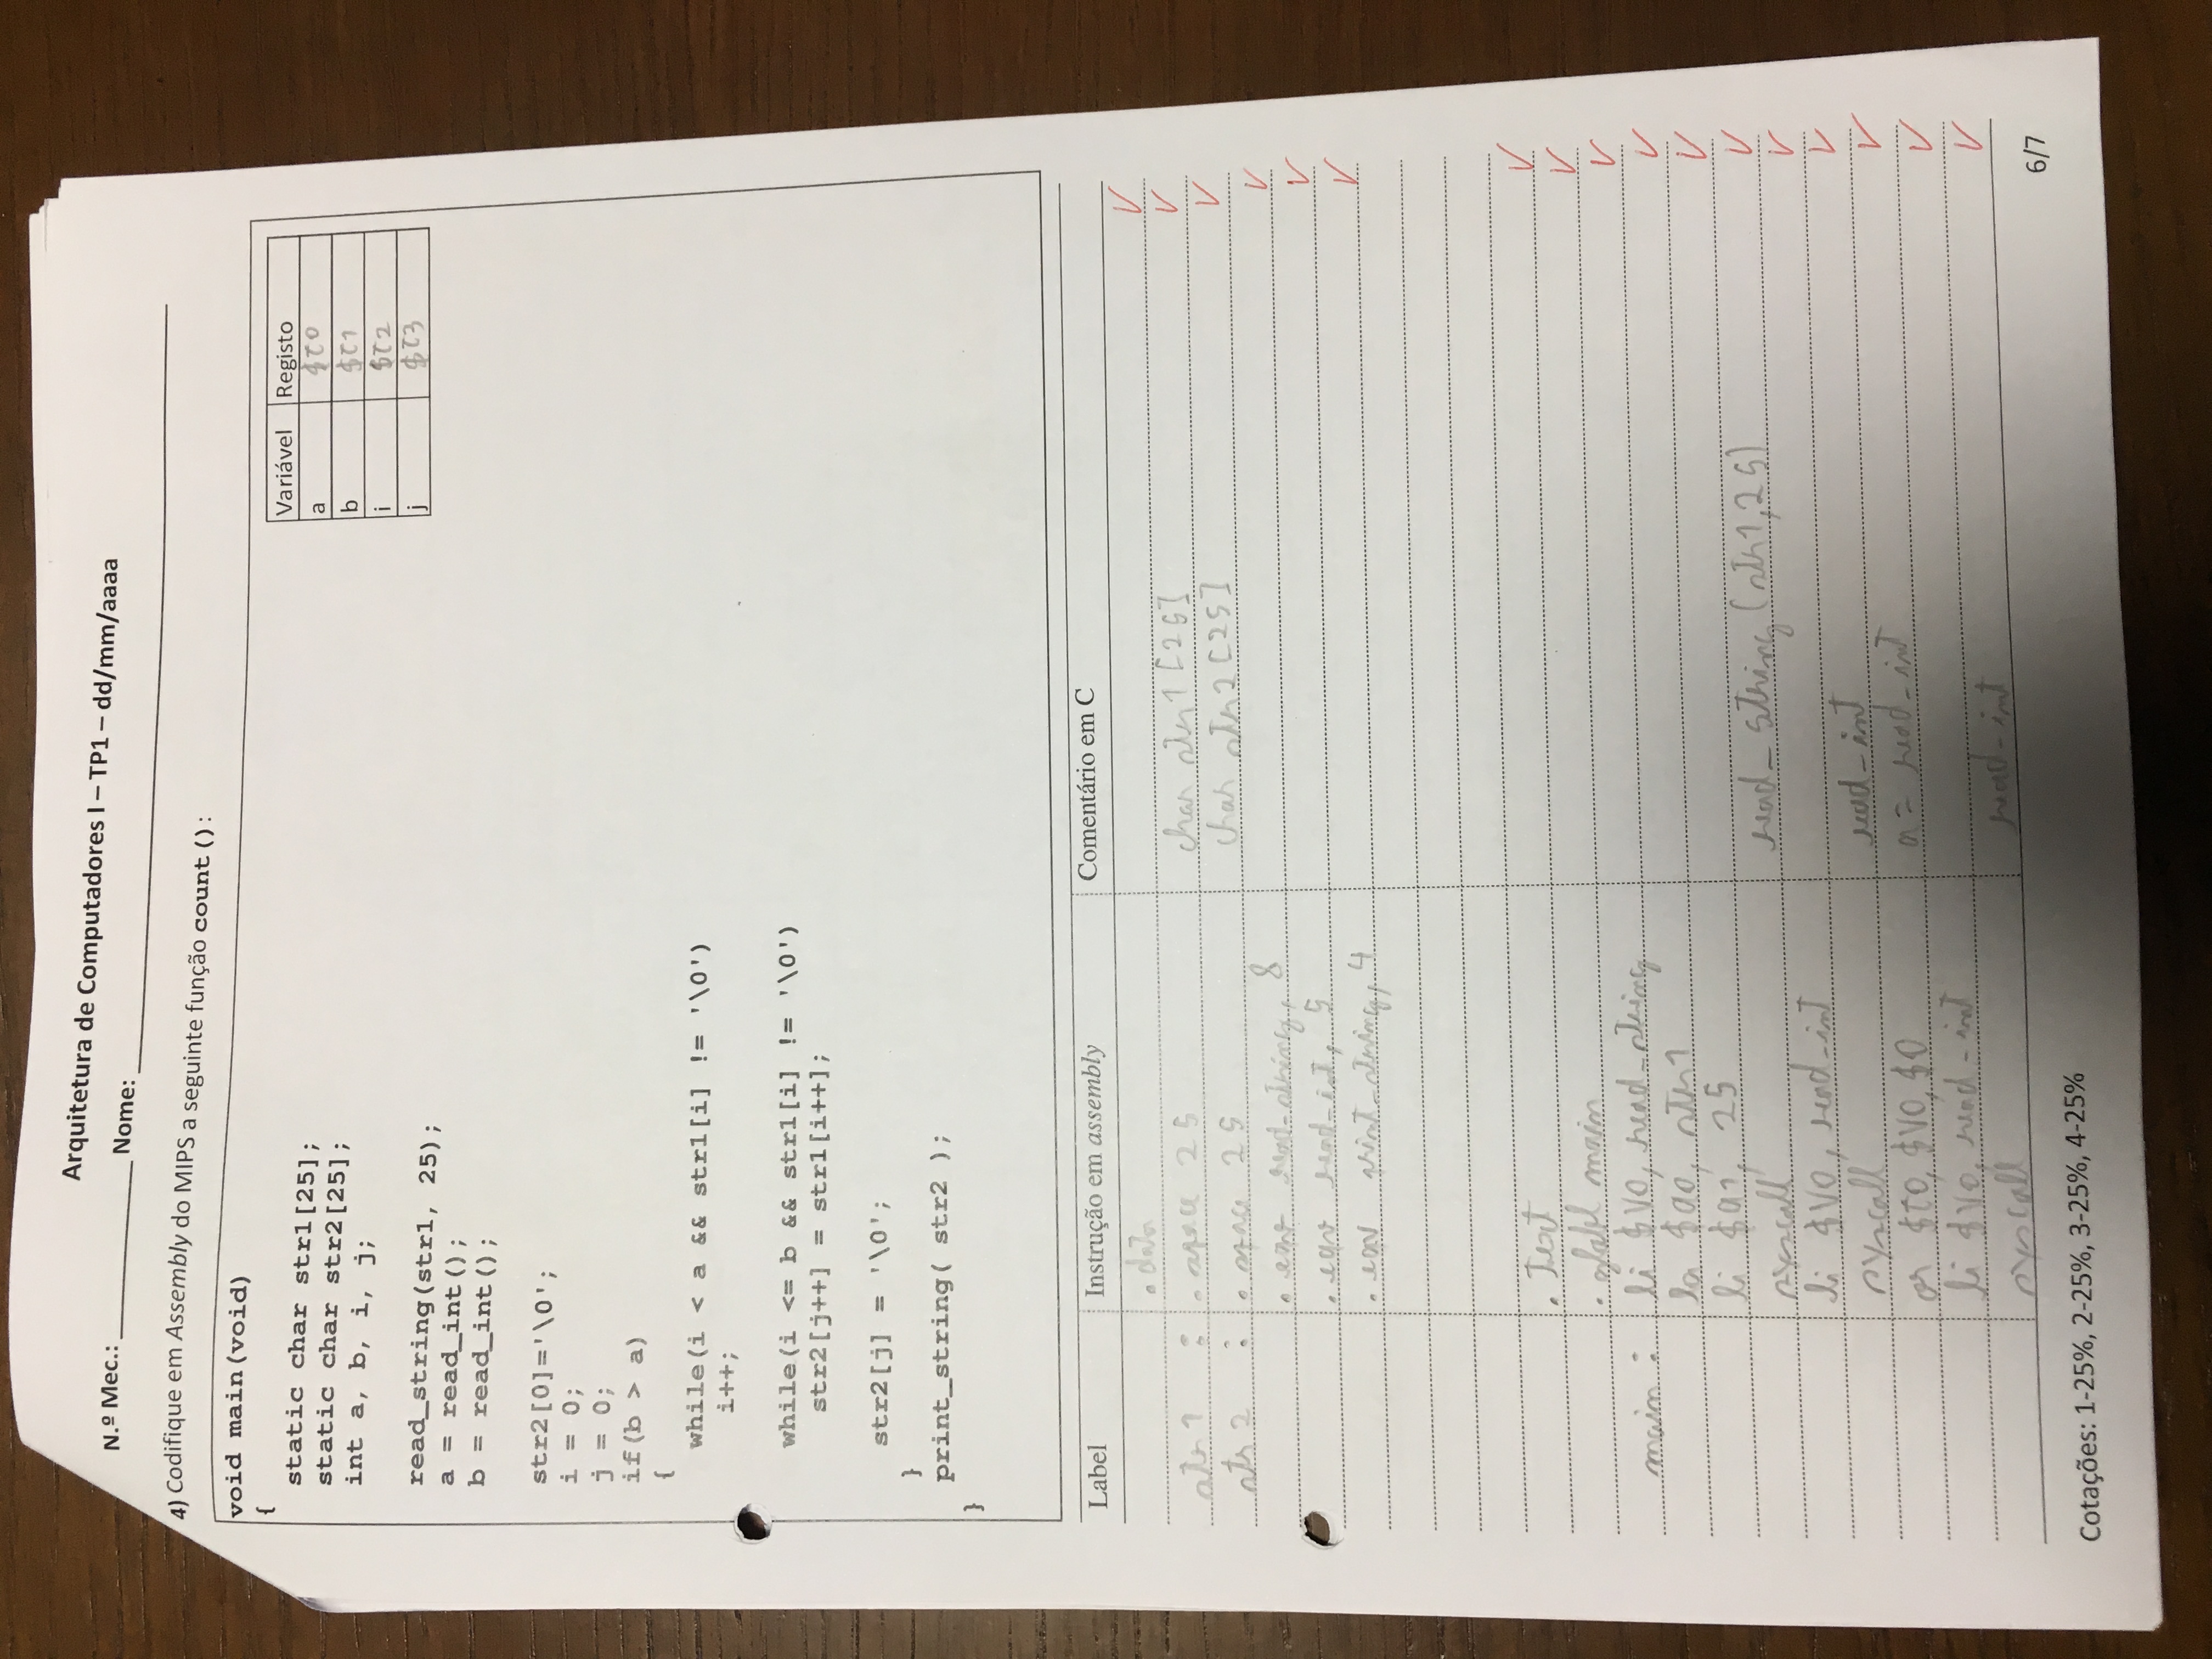 Arquitetura de Computadores I – TP1 – dd/mm/aaaa
N.º Mec.: ____________ Nome: ____________
4) Codifique em Assembly do MIPS a seguinte função count():
void main(void)
{
static char str1[25];
static char str2[25];
int a, b, i, j;
read_string(str1, 25);
a = read_int();
b = read_int();
str2[0]='\0';
i = 0;
j = 0;
if(b > a)
{
while(i < a && str1[i] != '\0')
i++;
while(i <= b && str1[i] != '\0')
str2[j++] = str1[i++];
str2[j] = '\0';
}
print_string( str2 );
}
Variável Registo
a $t0
b $t1
i $t2
j $t3
Label Instrução em assembly Comentário em C
.data
str1 : .space 25 char str1[25]
str2 : .space 25 char str2[25]
.eqv read_string, 8
.eqv read_int, 5
.eqv print_string, 4
.text
.globl main
main : li $v0, read_string
la $a0, str1
li $a1, 25
syscall read_string(str1,25)
li $v0, read_int
syscall read_int
or $t0, $v0, $0 a = read_int
li $v0, read_int
syscall read_int
6/7
Cotações: 1-25%, 2-25%, 3-25%, 4-25%